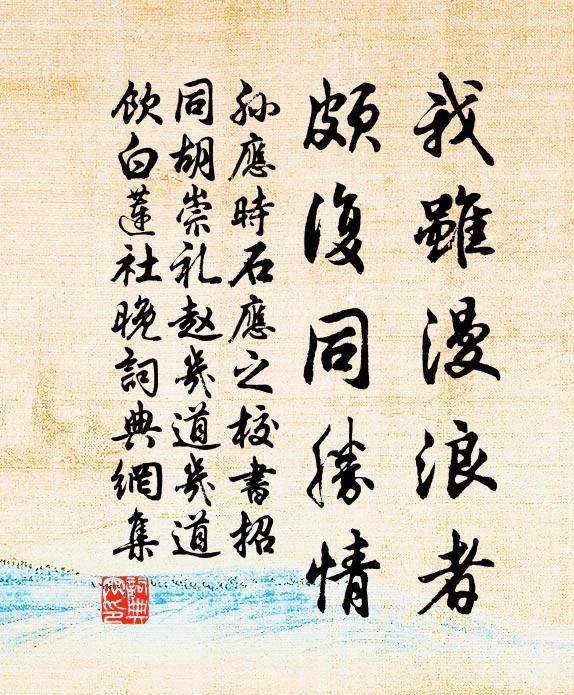 我雖漫浪者
頗復同勝情
孙應時石應之校書招
同胡崇礼赵幾道幾道
飲白蓮社晚詞典網集